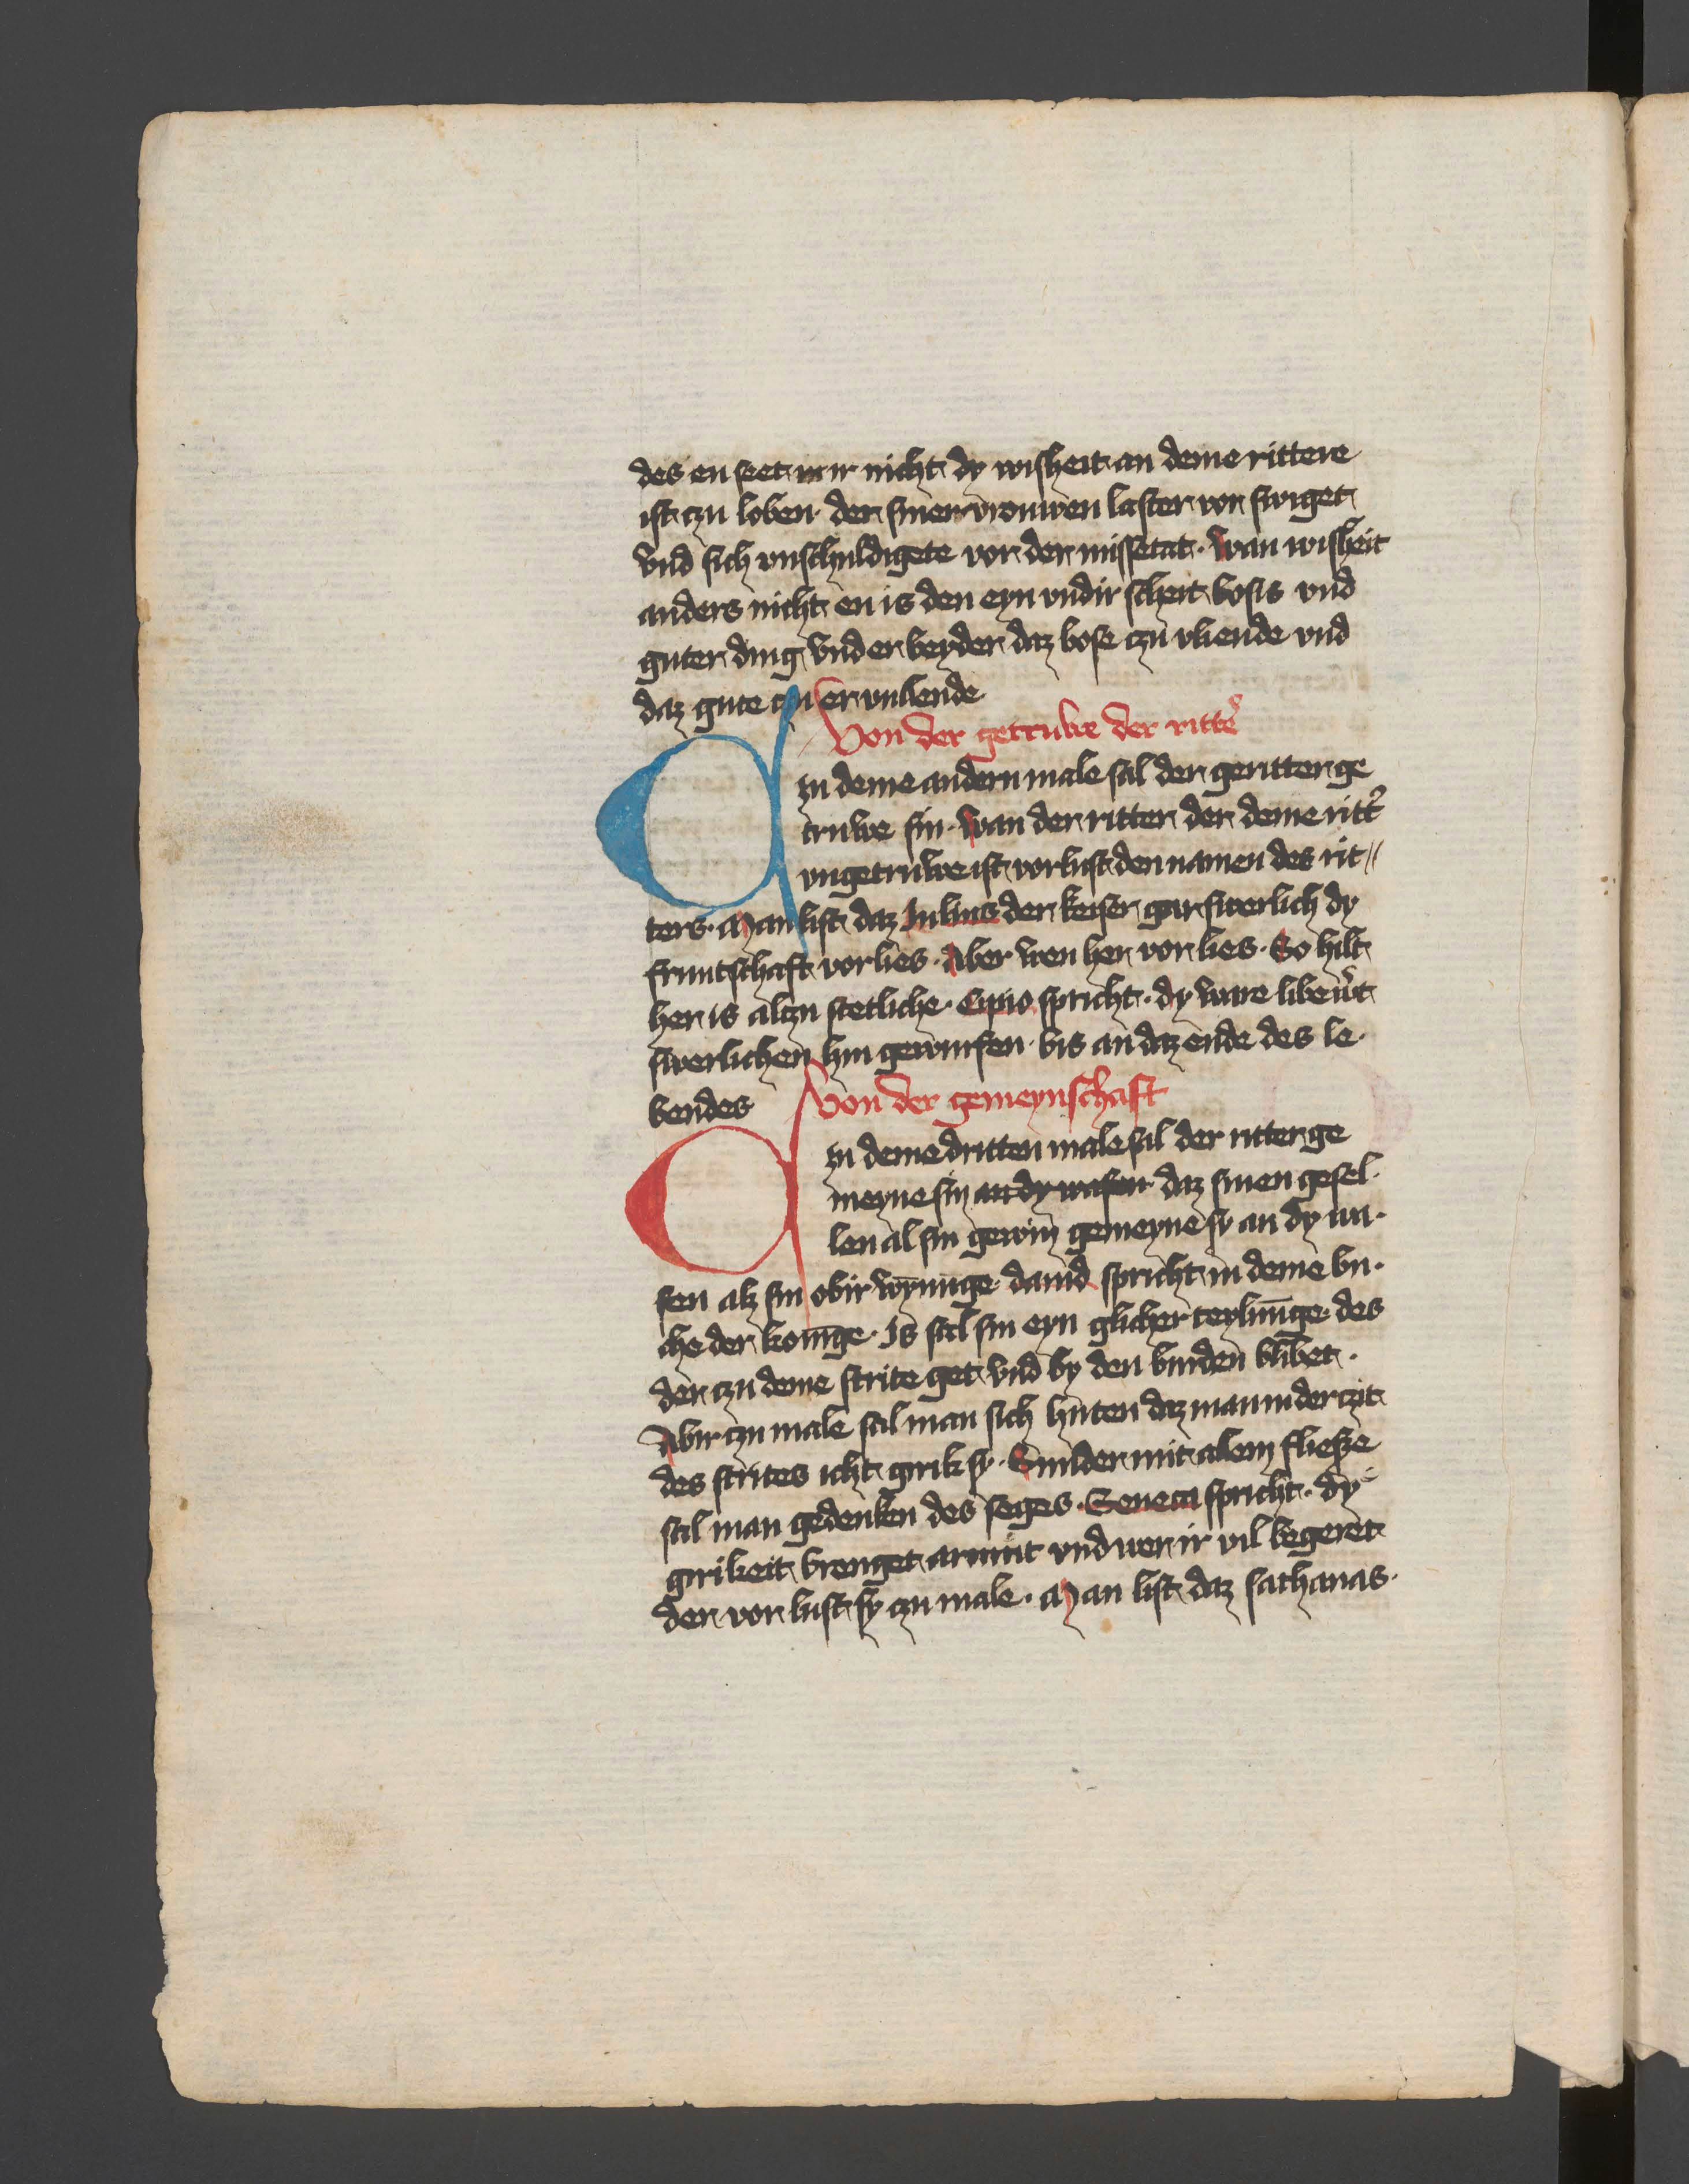 des en seet mir nicht dy wisheit an deme rittere
ist czu loben der siner vrouwen laster vor swiget
vnd sich vnschuldigete vor der missetat · Wan wisheit
anders nicht en is den eyn vndir scheit bosis vnd
guter ding vnd er beyder daz bose czu vliende vnd
daz gute czu ervullende
Von der getruwe der ritt̉
Czu deme andern male sal der geritter ge
truwe sin · Wan der ritter der deme ritt̉
vngetruwe ist vorlust den namen des rit〃
ters · Man list daz Julius der keiser gar swerlich dy
fruntschaft vorlies · Aber wen her vor lies · So hilt
her is alczu stetliche · Cipio spricht · dy ware libe w̉t
swerlichen hin geworfen bis an daz ende des le·
bendes
Von der gemeynschaft
Czu deme dritten male sal der ritter ge
meyne sin an dy wafen daz sinen gesel·
len al sin gewin gemeyne sy an dy wa·
fen alz sin obir wȳninge dauid spricht in deme bu·
che der konīge · Is sal sin eyn glicher teylūnge des
der czu deme strite get vnd by den burden blibet ·
Abir czu male sal man sich huten daz man in der czit
des strites icht girik sy · Sunder mit alem fliesze
sal man gedenken des seges · Seneca spricht · dy
girikeit brenget armut vnd wer ir vil begeret
der vor lust sy czu male · Man list daz sathanas ·